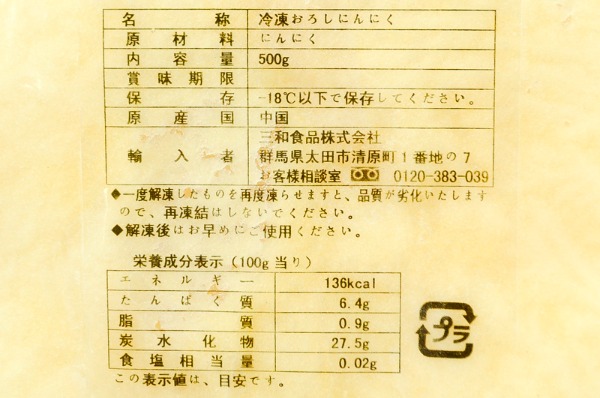 名称 冷凍おろしにんにく
原材料 にんにく
内容量 500g
賞味期限
保存 -18℃以下で保存してください。
原産国 中国
輸入者 三和食品株式会社
群馬県太田市清原町1番地の7
お客様相談室 0120-383-039
◆一度解凍したものを再度凍らせますと、品質が劣化いたします
ので、再凍結はしないでください。
◆解凍後はお早めにご使用ください。
栄養成分表示(100g当り)
エネルギー 136kcal
たんぱく質 6.4g
脂質 0.9g
炭水化物 27.5g
食塩相当量 0.02g
この表示値は、目安です。
プラ